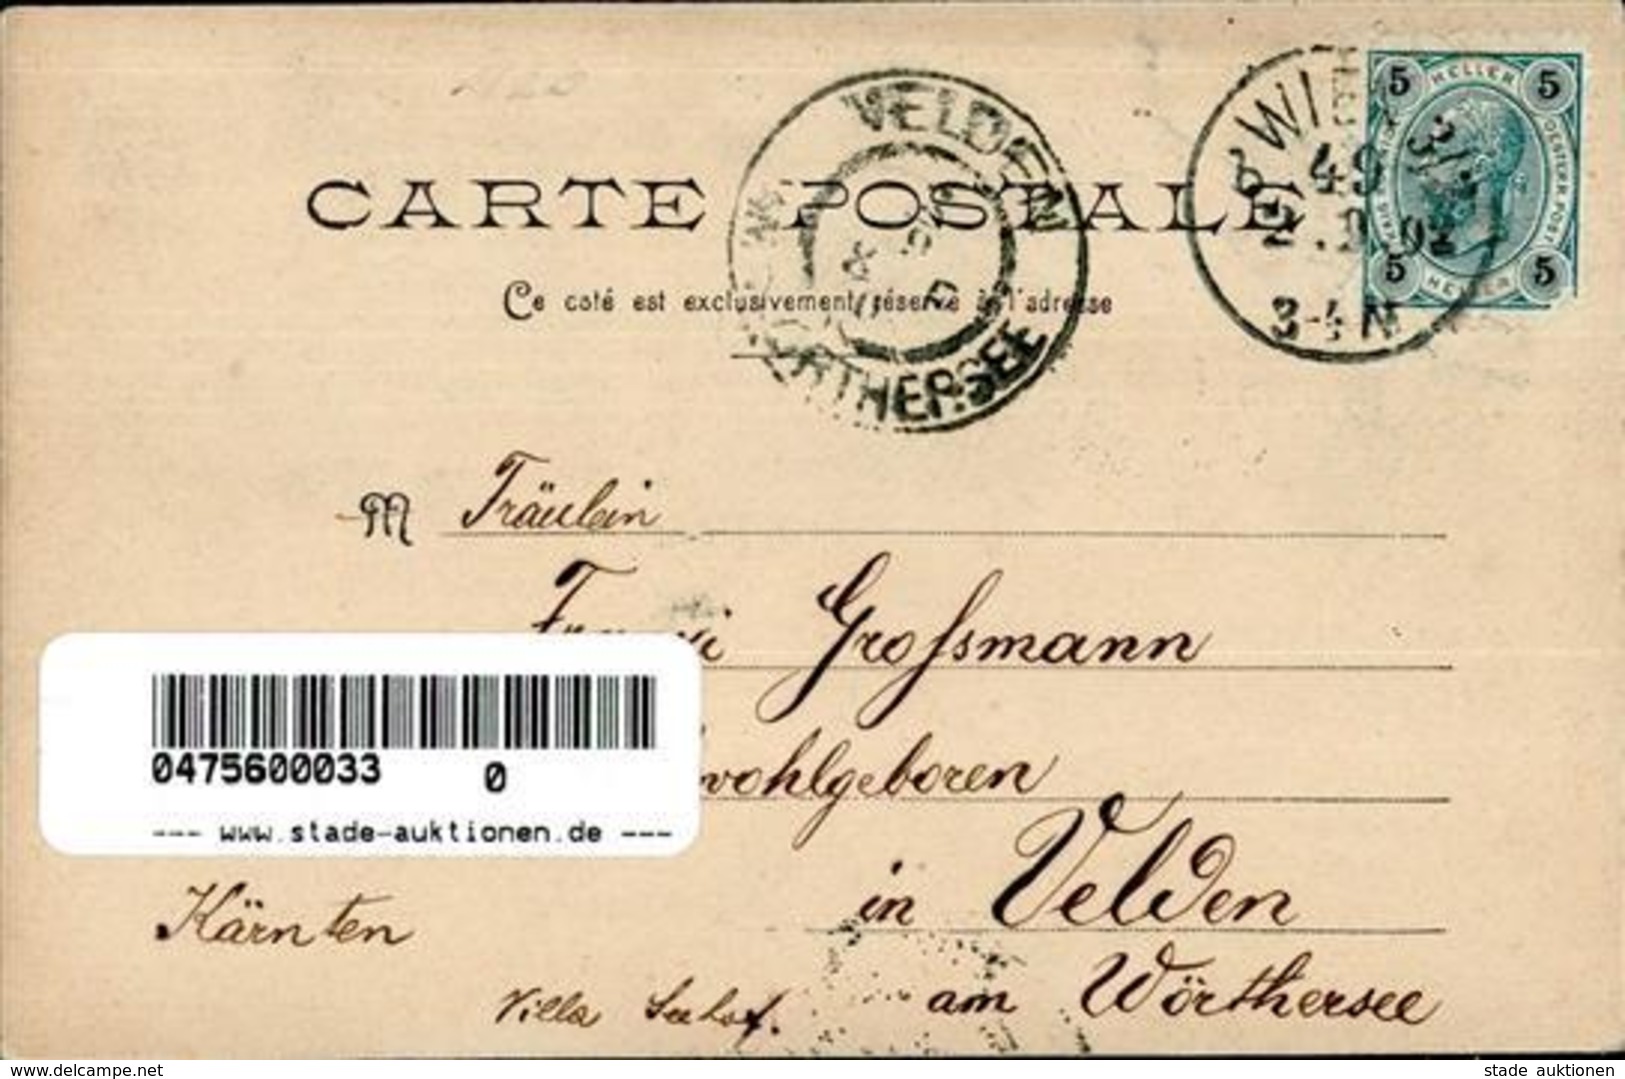 VELDEN
WÖRTHERSEE
WIEN
3/
49
3-4 N
5 HELLER 5
OESTERR. POST
5 HELLER 5
CARTE POSTALE
Ce coté est exclusivement réservé à l'adresse
M Fräulein
Grossmann
wohlgeboren
in Velden
am Wörthersee
Kärnten
Villa Seehof.
0475600033 0
--- www.stade-auktionen.de ---
www.delcampe.net
stade auktionen